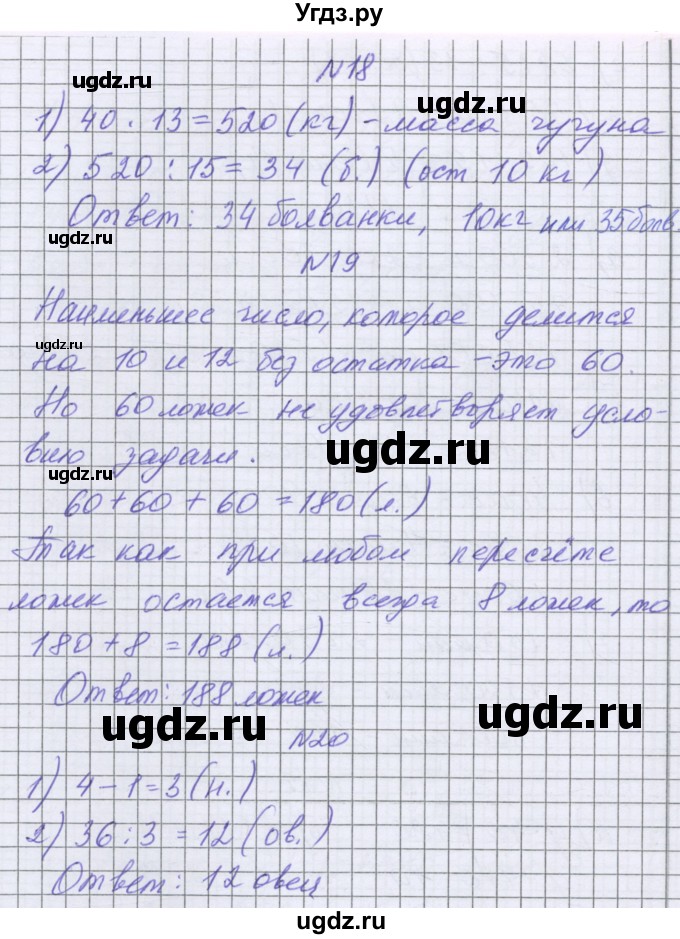 Угдз.ру
N18
ugdz.ru ugdz.ru
1) 40 · 13 = 520 (кг) - масса чугуна
2) 520 : 15 = 34 (б.) (ост 10 кг)
Ответ: 34 болванки, 10кг или 35болв.
ugdz.ru
N19
Наименьшее число, которое делится
ugdz.ru
на 10 и 12 без остатка - это 60.
Но 60 ложек не удовлетворяет усло-
ugdz.ru
вию задачи.
ugdz.ru
60 + 60 + 60 = 180 (л.)
Так как при любом пересчёте
ugdz.ru ugdz.ru
ложек остается всегда 8 ложек, то
180 + 8 = 188 (л.)
Ответ: 188 ложек
ugdz.ru ugdz.ru
N20
1) 4 - 1 = 3 (н.)
2) 36 : 3 = 12 (ов.)
Ответ: 12 овец
ugdz.ru